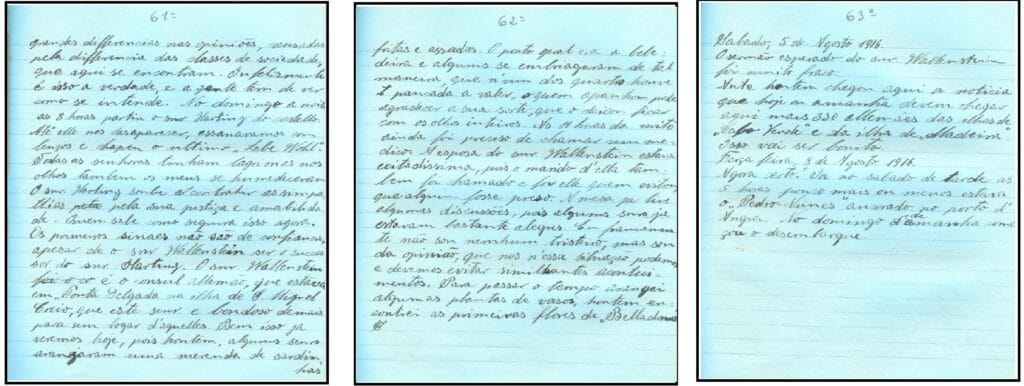 61=
grandes differencias nas opiniões, causadas
pela differencia das classes de sociedade,
que aqui se encontram. Infelizmente
é isso a verdade, e a gente tem de ver
como se intende. No domingo a noite
as 8 horas partiu o snr Harting do castello.
Até elle nos desaparecer,
lenços e o ultimo "Lebe Wohl".
Todas as senhoras tinham lagrimas nos
olhos tambem os meus se humedeceram
O snr. Harting soube as simpa
thias pela sua justiça e amabilida
de. Quem sabe como seguira isso agora.
Os primeiros sinaes não são de confiança,
apesar de o snr Walkenstein ser o succes
sor do snr. Harting. O snr. Walkenstein
é o consul allemão, que estava
em "Ponta Delgada na ilha de S. Miguel
Creio, que este snr. e bondoso demais
para um logar d'aquelles. Bem isso ja
veremos hoje, pois hontem, alguns senrs
arangaram uma merenda de sardin
has
62=
fritas e assadas. O ponto geral era a bebe-
deira e alguns se embriagaram de tal
maneira, que n'um dos quartos houve
pancada a valer, e quem apanhou pode
agradecer a sua sorte, que o deixou ficar
com os olhos inteiros. As 11 horas da noite
ainda foi preciso de chamar um me-
dico. A esposa do snr Walkenstein estava
excitadissima, pois o marido d'ella tam
bem foi chamado e foi elle quem evitou
que algum fosse preso. A mesa ja tive
algumas discussões, pois alguns snrs ja
estavam bastante alegres. Eu francamen
te não sou nenhum tristeiro, mas sou
da opinião, que nos n'essa situação podemos
e devemos evitar similhantes aconteci-
mentos. Para passar o tempo arangei
algumas plantas de vasos, hontem en-
contrei as primeiras flores de "Belladona
63=
Sabado, 5 de Agosto 1916.
O sermão esperado do snr. Walkenstein
foi muito fraco.
Ante hontem chegou aqui a noticia
que hoje ou amanha devem chegar
aqui mais 330 allemães das ilhas de
"Cabo Verde" e da ilha de "Madeira"
Isso vai ser bonito.
Terça feira, 8 de Agosto 1916.
Agora no sabado de tarde as
5 horas pouco mais ou menos estava
o "Pedro Nunes" ancorado no porto d'
Angra. No domingo de manha come
çou o desembarque.